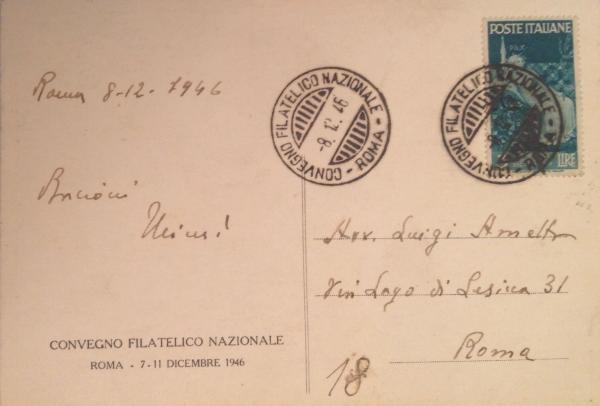 Roma 8-12-1946
CONVEGNO FILATELICO NAZIONALE
- ROMA -
-8.12.46
POSTE ITALIANE
PAX
LIRE
CONVEGNO FILATELICO NAZIONALE
ROMA
Avv. Luigi
Via Lago di Lesina 31
Roma
18
CONVEGNO FILATELICO NAZIONALE
ROMA - 7-11 DICEMBRE 1946